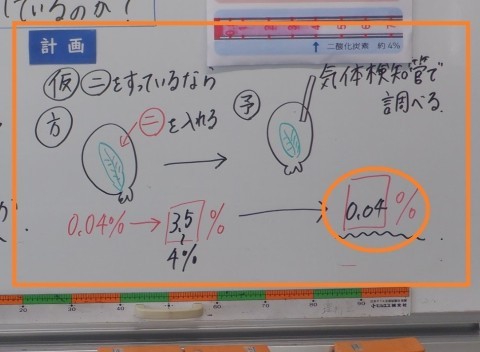 しているのか?
二酸化炭素 約4%
計画
仮 ㊁をすっているなら
方
㊁を入れる
予
気体検知管で
調べる.
0.04% → 3.5%
4%
0.04%